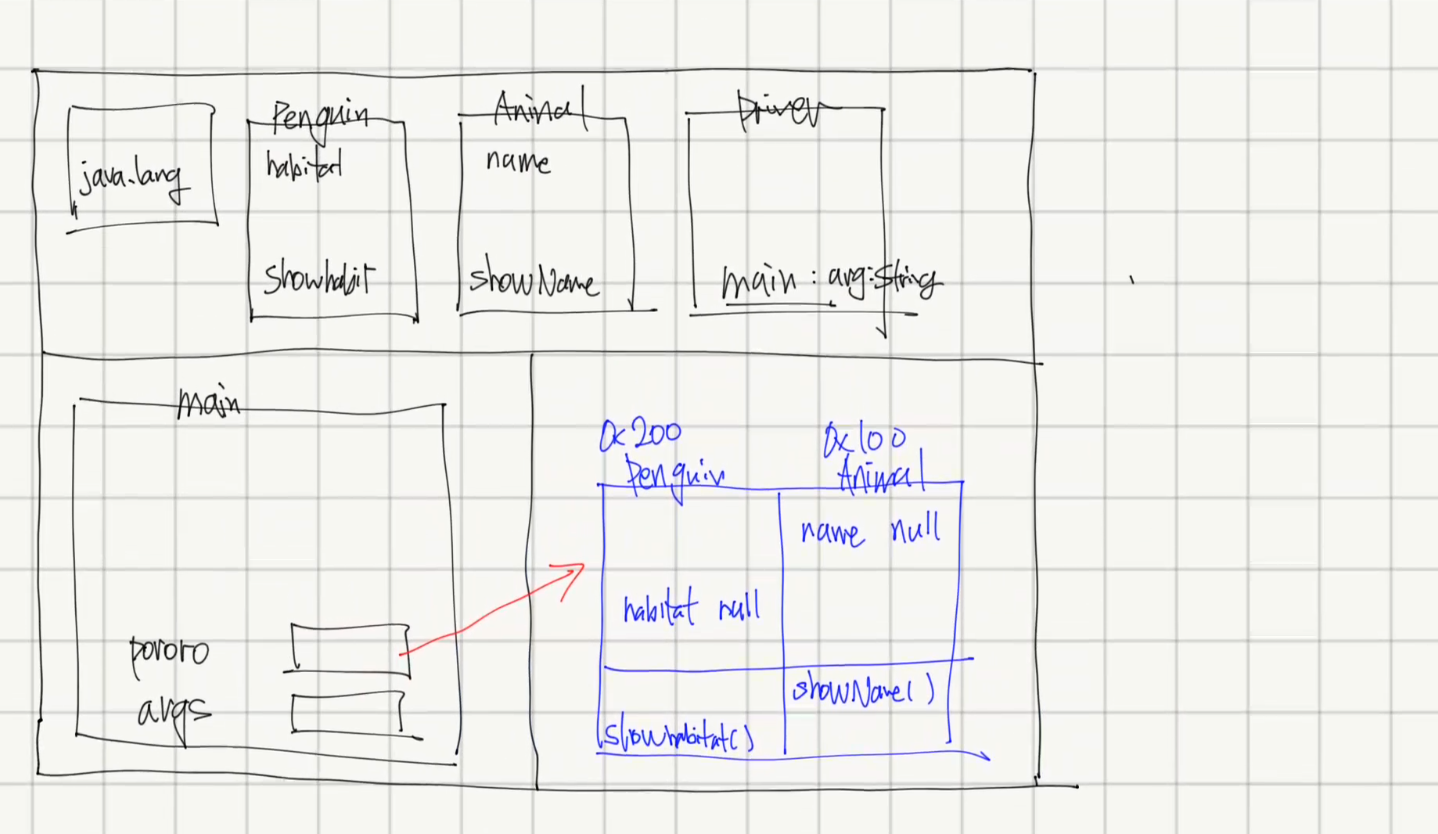 java.lang
Penguin
habitat
showhabit
Animal
name
showName
Driver
main : arg:String
main
pororo
args
0x200
Penguin
habitat null
showhabitat()
0x100
Animal
name null
showName()